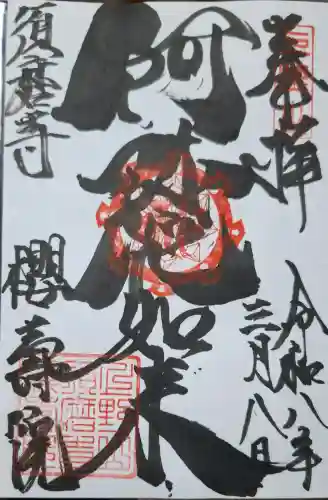 奉拝
令和八年
三月八日
阿
如来
須磨寺
櫻壽院